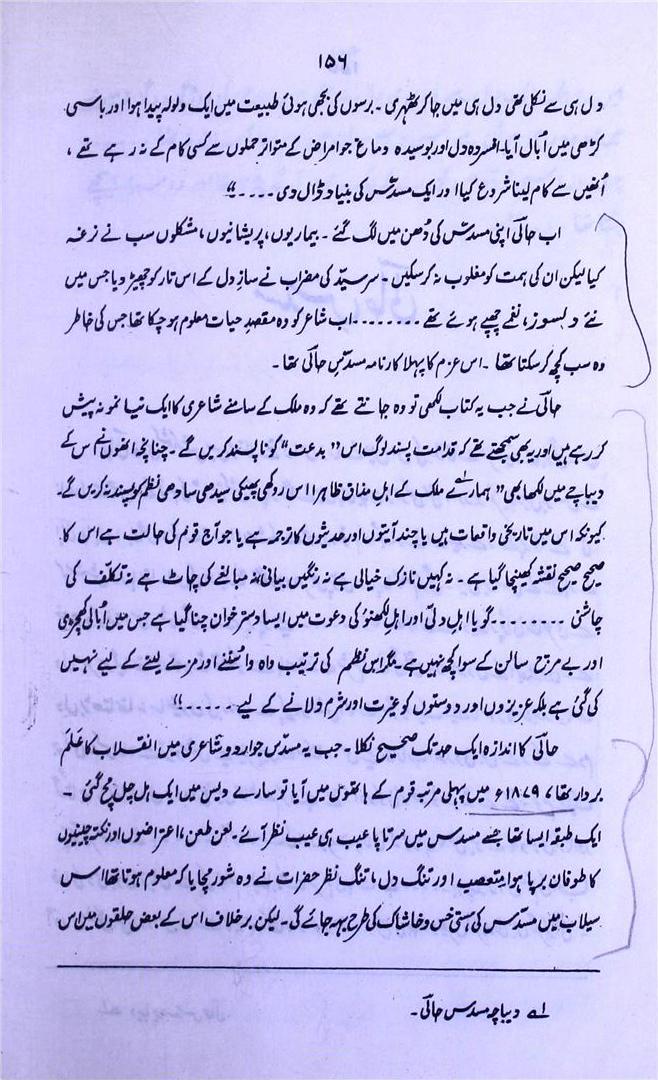 ۱۵۶
دل ہی سے نکلی تھی دل ہی میں جا کر ٹھہری ۔ برسوں کی بجھی ہوئی طبیعت میں ایک ولولہ پیدا ہوا اور باسی
کڑھی میں اُبال آیا۔ افسردہ دل اور بوسیدہ دماغ جو امراض کے متواتر حملوں سے کسی کام کے نہ رہے تھے ،
اُنھیں سے کام لینا شروع کیا اور ایک مسدّس کی بنیاد ڈال دی ....“
اب حالیؔ اپنی مسدّس کی دُھن میں لگ گئے ۔ بیماریوں، پریشانیوں، مشکلوں سب نے نرغہ
کیا لیکن ان کی ہمت کو مغلوب نہ کرسکیں ۔ سرسیّد کی مضراب نے سازِ دل کے اس تار کو چھیڑ دیا جس میں
نئے دلسوز، نغمے چھپے ہوئے تھے ........ اب شاعر کو وہ مقصدِ حیات معلوم ہوچکا تھا جس کی خاطر
وہ سب کچھ کر سکتا تھا ۔ اس عزم کا پہلا کارنامہ مسدّسِ حالیؔ تھا ۔
حالیؔ نے جب یہ کتاب لکھی تو وہ جانتے تھے کہ وہ ملک کے سامنے شاعری کا ایک نیا نمونہ پیش
کر رہے ہیں اور یہ بھی سمجھتے تھے کہ قدامت پسند لوگ اس ”بدعت“ کو ناپسند کریں گے ۔ چنانچہ انھوں نے اس کے
دیباچے میں لکھا بھی ”ہمارے ملک کے اہلِ مذاق ظاہرا اس روکھی پھیکی سیدھی سادھی نظم کو پسند نہ کریں گے۔
کیونکہ اس میں تاریخی واقعات ہیں یا چند آیتوں اور حدیثوں کا ترجمہ ہے یا جو آج قوم کی حالت ہے اس کا
صحیح صحیح نقشہ کھینچا گیا ہے ۔ نہ کہیں نازک خیالی ہے نہ رنگیں بیانی، نہ مبالغے کی چاٹ ہے نہ تکلّف کی
چاشنی ........ گویا اہلِ دلّی اور اہلِ لکھنؤ کی دعوت میں ایسا دسترخوان چنا گیا ہے جس میں اُبالی کھچڑی
اور بے مرچ سالن کے سوا کچھ نہیں ہے ۔ مگر اس نظم کی ترتیب واہ وا سننے اور مزے لینے کے لیے نہیں
کی گئی ہے بلکہ عزیزوں اور دوستوں کو غیرت اور شرم دلانے کے لیے .....“
حالیؔ کا اندازہ ایک حد تک صحیح نکلا ۔ جب یہ مسدّس جو اردو شاعری میں انقلاب کا عَلَم
بردار تھا، ۱۸۷۹ء میں پہلی مرتبہ قوم کے ہاتھوں میں آیا تو سارے دیس میں ایک ہل چل مچ گئی ۔
ایک طبقہ ایسا تھا جسے مسدس میں سرتا پا عیب ہی عیب نظر آئے ۔ لعن طعن، اعتراضوں اور نکتہ چینیوں
کا طوفان برپا ہوا۔ متعصب اور تنگ دل، تنگ نظر حضرات نے وہ شور مچایا کہ معلوم ہوتا تھا اس
سیلاب میں مسدّس کی ہستی خس و خاشاک کی طرح بہہ جائے گی ۔ لیکن برخلاف اس کے بعض حلقوں میں اس
لے دیباچہ مسدس حالیؔ ۔